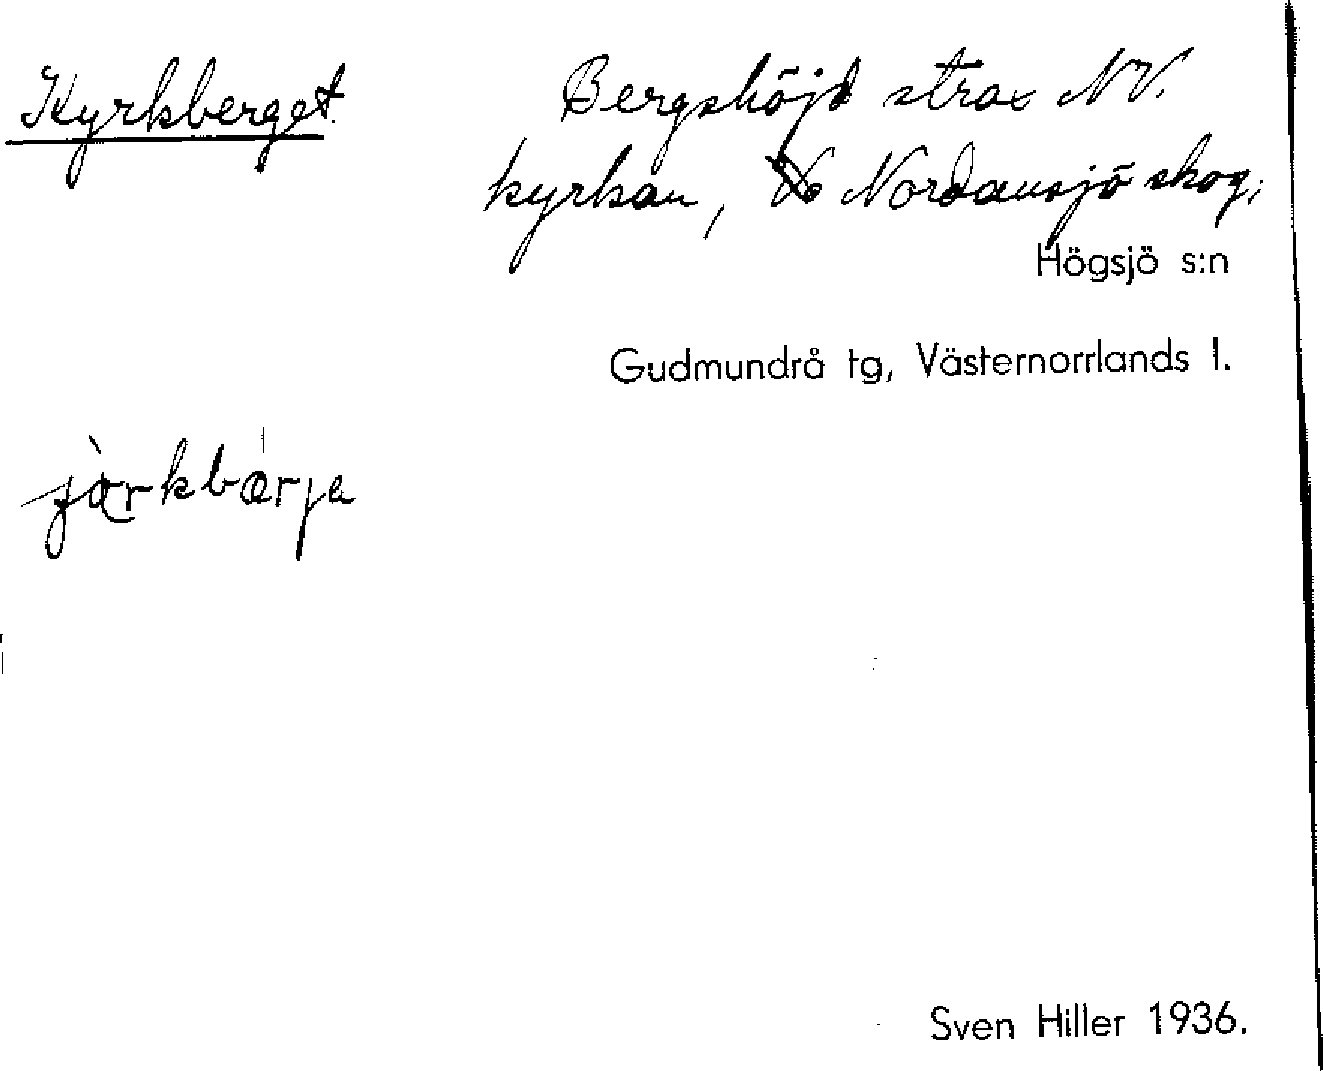 Kyrkberget
Bergshöjd strax NV.
kyrkan, Nordansjö skog,
Högsjö s:n
Gudmundrå tg, Västernorrlands l.
Sven Hiller 1936.